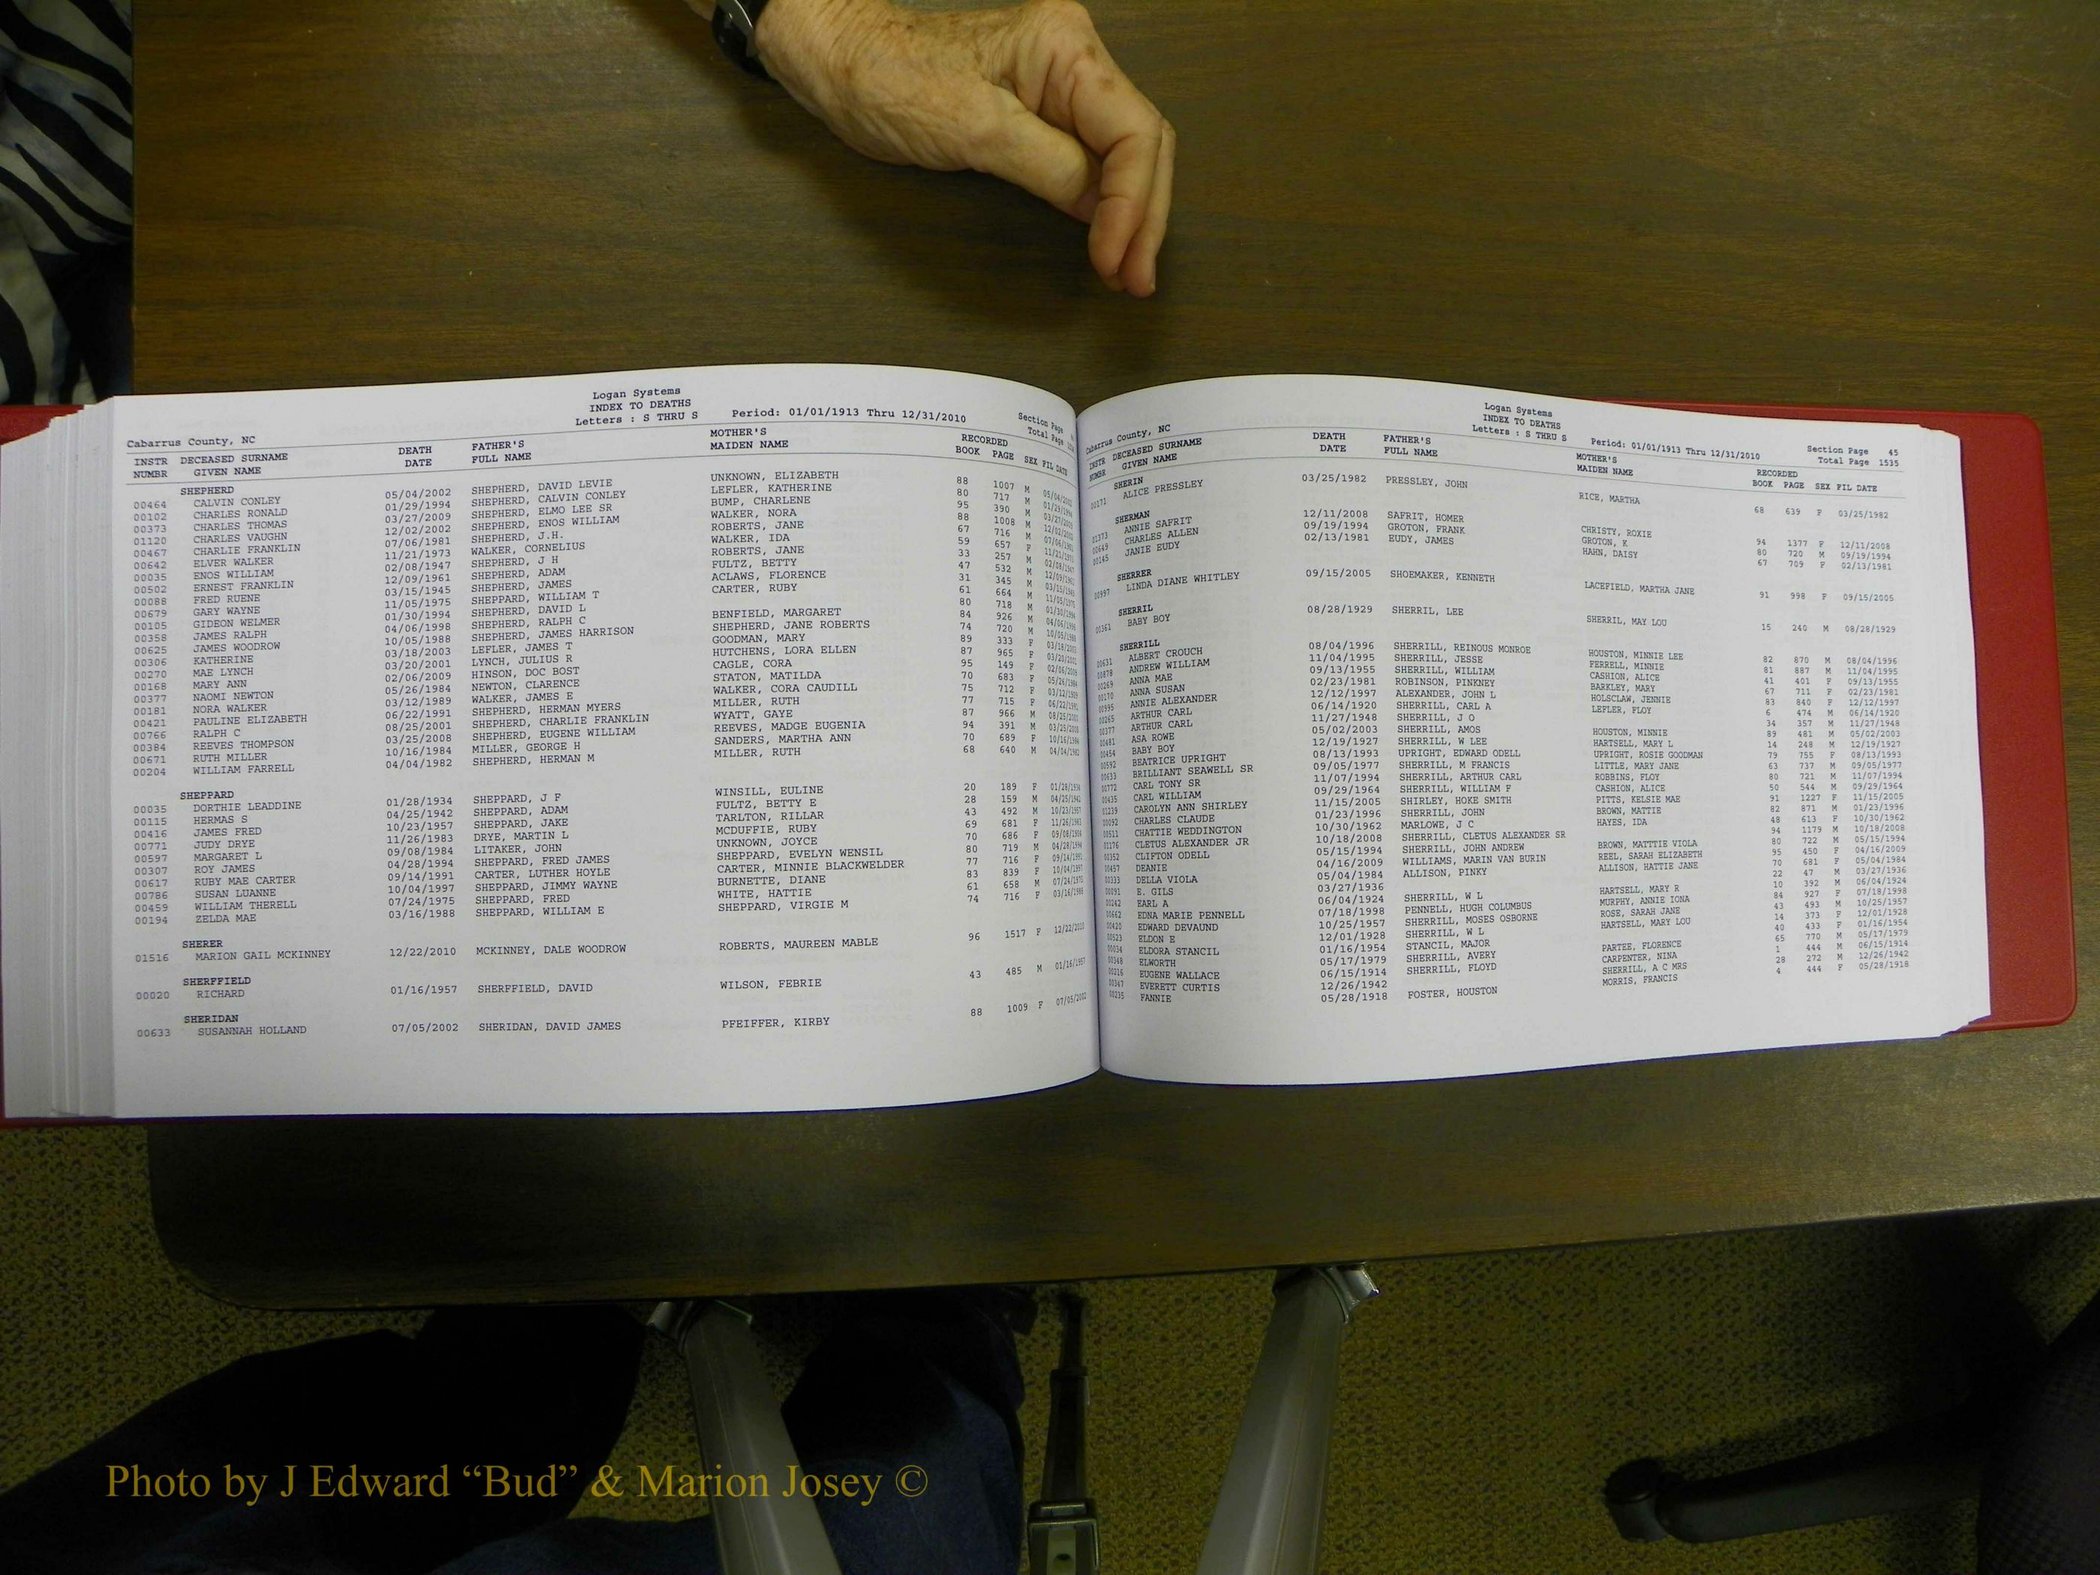 Logan Systems
INDEX TO DEATHS
Cabarrus County, NC Letters : S THRU S Period: 01/01/1913 Thru 12/31/2010 Section Page
Total Page
INSTR DECEASED SURNAME DEATH FATHER'S MOTHER'S RECORDED
NUMBR GIVEN NAME DATE FULL NAME MAIDEN NAME BOOK PAGE SEX FIL DATE
SHEPHERD
00464 CALVIN CONLEY 05/04/2002 SHEPHERD, DAVID LEVIE UNKNOWN, ELIZABETH 88 1007 M 05/04/2002
00102 CHARLES RONALD 01/29/1994 SHEPHERD, CALVIN CONLEY LEFLER, KATHERINE 80 717 M 01/29/1994
00373 CHARLES THOMAS 03/27/2009 SHEPHERD, ELMO LEE SR BUMP, CHARLENE 95 390 M 03/27/2009
01120 CHARLES VAUGHN 12/02/2002 SHEPHERD, ENOS WILLIAM WALKER, NORA 88 1008 M 12/02/2002
00467 CHARLIE FRANKLIN 07/06/1981 SHEPHERD, J.H. ROBERTS, JANE 67 716 M 07/06/1981
00642 ELVER WALKER 11/21/1973 WALKER, CORNELIUS WALKER, IDA 59 657 F 11/21/1973
00035 ENOS WILLIAM 02/08/1947 SHEPHERD, J H ROBERTS, JANE 33 257 M 02/08/1947
00502 ERNEST FRANKLIN 12/09/1961 SHEPHERD, ADAM FULTZ, BETTY 47 532 M 12/09/1961
00088 FRED RUENE 03/15/1945 SHEPHERD, JAMES ACLAWS, FLORENCE 31 345 M 03/15/1945
00679 GARY WAYNE 11/05/1975 SHEPHERD, WILLIAM T CARTER, RUBY 61 664 M 11/05/1975
00105 GIDEON WELMER 01/30/1994 SHEPHERD, DAVID L 80 718 M 01/30/1994
00358 JAMES RALPH 04/06/1998 SHEPHERD, RALPH C BENFIELD, MARGARET 84 926 M 04/06/1998
00625 JAMES WOODROW 10/05/1988 SHEPHERD, JAMES HARRISON SHEPHERD, JANE ROBERTS 74 720 M 10/05/1988
00306 KATHERINE 03/18/2003 LEFLER, JAMES T GOODMAN, MARY 89 333 F 03/18/2003
00270 MAE LYNCH 03/20/2001 LYNCH, JULIUS R HUTCHENS, LORA ELLEN 87 965 F 03/20/2001
00168 MARY ANN 02/06/2009 HINSON, DOC BOST CAGLE, CORA 95 149 F 02/06/2009
00377 NAOMI NEWTON 05/26/1984 NEWTON, CLARENCE STATON, MATILDA 70 683 F 05/26/1984
00181 NORA WALKER 03/12/1989 WALKER, JAMES E WALKER, CORA CAUDILL 75 712 F 03/12/1989
00421 PAULINE ELIZABETH 06/22/1991 SHEPHERD, HERMAN MYERS MILLER, RUTH 77 715 F 06/22/1991
00766 RALPH C 08/25/2001 SHEPHERD, CHARLIE FRANKLIN WYATT, GAYE 87 966 M 08/25/2001
00384 REEVES THOMPSON 03/25/2008 SHEPHERD, EUGENE WILLIAM REEVES, MADGE EUGENIA 94 391 M 03/25/2008
00671 RUTH MILLER 10/16/1984 MILLER, GEORGE H SANDERS, MARTHA ANN 70 689 F 10/16/1984
00204 WILLIAM FARRELL 04/04/1982 SHEPHERD, HERMAN M MILLER, RUTH 68 640 M 04/04/1982
SHEPPARD
00035 DORTHIE LEADDINE 01/28/1934 SHEPPARD, J F WINSILL, EULINE 20 189 F 01/28/1934
00115 HERMAS S 04/25/1942 SHEPPARD, ADAM FULTZ, BETTY E 28 159 M 04/25/1942
00416 JAMES FRED 10/23/1957 SHEPPARD, JAKE TARLTON, RILLAR 43 492 M 10/23/1957
00771 JUDY DRYE 11/26/1983 DRYE, MARTIN L MCDUFFIE, RUBY 69 681 F 11/26/1983
00597 MARGARET L 09/08/1984 LITAKER, JOHN UNKNOWN, JOYCE 70 686 F 09/08/1984
00307 ROY JAMES 04/28/1994 SHEPPARD, FRED JAMES SHEPPARD, EVELYN WENSIL 80 719 M 04/28/1994
00617 RUBY MAE CARTER 09/14/1991 CARTER, LUTHER HOYLE CARTER, MINNIE BLACKWELDER 77 716 F 09/14/1991
00786 SUSAN LUANNE 10/04/1997 SHEPPARD, JIMMY WAYNE BURNETTE, DIANE 83 839 F 10/04/1997
00459 WILLIAM THERELL 07/24/1975 SHEPPARD, FRED WHITE, HATTIE 61 658 M 07/24/1975
00194 ZELDA MAE 03/16/1988 SHEPPARD, WILLIAM E SHEPPARD, VIRGIE M 74 716 F 03/16/1988
SHERER
01516 MARION GAIL MCKINNEY 12/22/2010 MCKINNEY, DALE WOODROW ROBERTS, MAUREEN MABLE 96 1517 F 12/22/2010
SHERFFIELD
00020 RICHARD 01/16/1957 SHERFFIELD, DAVID WILSON, FEBRIE 43 485 M 01/16/1957
SHERIDAN
00633 SUSANNAH HOLLAND 07/05/2002 SHERIDAN, DAVID JAMES PFEIFFER, KIRBY 88 1009 F 07/05/2002
Logan Systems
INDEX TO DEATHS
Cabarrus County, NC Letters : S THRU S Period: 01/01/1913 Thru 12/31/2010 Section Page 45
Total Page 1535
INSTR DECEASED SURNAME DEATH FATHER'S MOTHER'S RECORDED
NUMBR GIVEN NAME DATE FULL NAME MAIDEN NAME BOOK PAGE SEX FIL DATE
SHERIN
00171 ALICE PRESSLEY 03/25/1982 PRESSLEY, JOHN RICE, MARTHA 68 639 F 03/25/1982
SHERMAN
01373 ANNIE SAFRIT 12/11/2008 SAFRIT, HOMER CHRISTY, ROXIE 94 1377 F 12/11/2008
00649 CHARLES ALLEN 09/19/1994 GROTON, FRANK GROTON, K 80 720 M 09/19/1994
00145 JANIE EUDY 02/13/1981 EUDY, JAMES HAHN, DAISY 67 709 F 02/13/1981
SHERRER
00997 LINDA DIANE WHITLEY 09/15/2005 SHOEMAKER, KENNETH LACEFIELD, MARTHA JANE 91 998 F 09/15/2005
SHERRIL
00361 BABY BOY 08/28/1929 SHERRIL, LEE SHERRIL, MAY LOU 15 240 M 08/28/1929
SHERRILL
00631 ALBERT CROUCH 08/04/1996 SHERRILL, REINOUS MONROE HOUSTON, MINNIE LEE 82 870 M 08/04/1996
00878 ANDREW WILLIAM 11/04/1995 SHERRILL, JESSE FERRELL, MINNIE 81 887 M 11/04/1995
00269 ANNA MAE 09/13/1955 SHERRILL, WILLIAM CASHION, ALICE 41 401 F 09/13/1955
00170 ANNA SUSAN 02/23/1981 ROBINSON, PINKNEY BARKLEY, MARY 67 711 F 02/23/1981
00995 ANNIE ALEXANDER 12/12/1997 ALEXANDER, JOHN L HOLSCLAW, JENNIE 83 840 F 12/12/1997
00265 ARTHUR CARL 06/14/1920 SHERRILL, CARL A LEFLER, FLOY 6 474 M 06/14/1920
00377 ARTHUR CARL 11/27/1948 SHERRILL, J O 34 357 M 11/27/1948
00481 ASA ROWE 05/02/2003 SHERRILL, AMOS HOUSTON, MINNIE 89 481 M 05/02/2003
00454 BABY BOY 12/19/1927 SHERRILL, W LEE HARTSELL, MARY L 14 248 M 12/19/1927
00592 BEATRICE UPRIGHT 08/13/1993 UPRIGHT, EDWARD ODELL UPRIGHT, ROSIE GOODMAN 79 755 F 08/13/1993
00633 BRILLIANT SEAWELL SR 09/05/1977 SHERRILL, M FRANCIS LITTLE, MARY JANE 63 737 M 09/05/1977
00772 CARL TONY SR 11/07/1994 SHERRILL, ARTHUR CARL ROBBINS, FLOY 80 721 M 11/07/1994
00435 CARL WILLIAM 09/29/1964 SHERRILL, WILLIAM F CASHION, ALICE 50 544 M 09/29/1964
01239 CAROLYN ANN SHIRLEY 11/15/2005 SHIRLEY, HOKE SMITH PITTS, KELSIE MAE 91 1227 F 11/15/2005
00092 CHARLES CLAUDE 01/23/1996 SHERRILL, JOHN BROWN, MATTIE 82 871 M 01/23/1996
00511 CHATTIE WEDDINGTON 10/30/1962 MARLOWE, J C HAYES, IDA 48 613 F 10/30/1962
01176 CLETUS ALEXANDER JR 10/18/2008 SHERRILL, CLETUS ALEXANDER SR 94 1179 M 10/18/2008
00352 CLIFTON ODELL 05/15/1994 SHERRILL, JOHN ANDREW BROWN, MATTTIE VIOLA 80 722 M 05/15/1994
00457 DEANIE 04/16/2009 WILLIAMS, MARIN VAN BURIN REEL, SARAH ELIZABETH 95 450 F 04/16/2009
00333 DELLA VIOLA 05/04/1984 ALLISON, PINKY ALLISON, HATTIE JANE 70 681 F 05/04/1984
00091 E. GILS 03/27/1936 22 47 M 03/27/1936
00242 EARL A 06/04/1924 SHERRILL, W L HARTSELL, MARY R 10 392 M 06/04/1924
00662 EDNA MARIE PENNELL 07/18/1998 PENNELL, HUGH COLUMBUS MURPHY, ANNIE IONA 84 927 F 07/18/1998
00420 EDWARD DEVAUND 10/25/1957 SHERRILL, MOSES OSBORNE ROSE, SARAH JANE 43 493 M 10/25/1957
00523 ELDON E 12/01/1928 SHERRILL, W L HARTSELL, MARY LOU 14 373 F 12/01/1928
00034 ELDORA STANCIL 01/16/1954 STANCIL, MAJOR 40 433 F 01/16/1954
00348 ELWORTH 05/17/1979 SHERRILL, AVERY PARTEE, FLORENCE 65 770 M 05/17/1979
00216 EUGENE WALLACE 06/15/1914 SHERRILL, FLOYD CARPENTER, NINA 1 444 M 06/15/1914
00367 EVERETT CURTIS 12/26/1942 SHERRILL, A C MRS 28 272 M 12/26/1942
00235 FANNIE 05/28/1918 FOSTER, HOUSTON MORRIS, FRANCIS 4 444 F 05/28/1918
Photo by J Edward “Bud” & Marion Josey ©